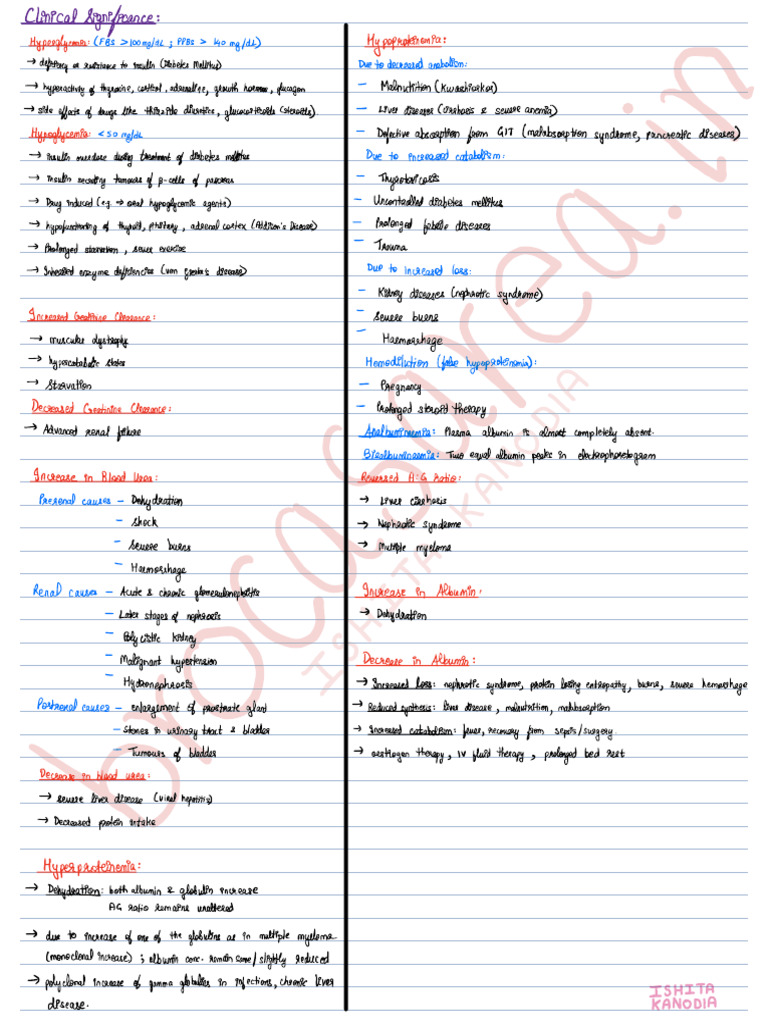 Clinical Significance:
Hyperglycemia: (FBS >100mg/dL ; PPBS > 140 mg/dL)
→ deficiency or resistance to insulin (Diabetes Mellitus)
→ hyperactivity of thyroxine, cortisol, adrenaline, growth hormone, glucagon
→ side effects of drugs like thiazide diuretics, glucocorticoids (steroids)
Hypoglycemia: <50 mg/dL
→ insulin overdose during treatment of diabetes mellitus
→ insulin secreting tumours of β-cells of pancreas
→ Drug induced (e.g → oral hypoglycemic agents)
→ hypofunctioning of thyroid, pituitary, adrenal cortex (Addison's Disease)
→ Prolonged starvation, severe exercise
→ Inherited enzyme deficiencies (von gierke's disease)
Increased Creatinine Clearance:
→ muscular dystrophy
→ hypercatabolic states
→ Starvation
Decreased Creatinine Clearance:
→ Advanced renal failure
Increase in Blood Urea:
Prerenal causes – Dehydration
– Shock
– Severe burns
– Haemorrhage
Renal causes – Acute & chronic glomerulonephritis
– Later stages of nephrosis
– Polycistic kidney
– Malignant hypertension
– Hydronephrosis
Postrenal causes – enlargement of prostrate gland
– Stones in urinary tract & bladder
– Tumours of bladder
Decrease in blood urea:
→ severe liver disease (viral hepatitis)
→ Decreased protein intake
Hyperproteinemia:
→ Dehydration: both albumin & globulin increase
AG ratio remains unaltered
→ due to increase of one of the globulins as in multiple myeloma
(monoclonal increase) ; albumin conc. remain same/slightly reduced
→ polyclonal increase of gamma globulins in infections, chronic liver
disease.
Hypoproteinemia:
Due to decreased anabolism:
– Malnutrition (Kwashiorkor)
– Liver diseases (cirrhosis & severe anemia)
– Defective absorption from GIT (malabsorption syndrome, pancreatic diseases)
Due to increased catabolism:
– Thyrotoxicosis
– Uncontrolled diabetes mellitus
– Prolonged febrile diseases
– Trauma
Due to increased loss:
– Kidney diseases (nephrotic syndrome)
– Severe burns
– Haemorrhage
Hemodilution (false hypoproteinemia):
– Pregnancy
– Prolonged steroid therapy
Analbuminaemia: Plasma albumin is almost completely absent.
Bisalbuminaemia: Two equal albumin peaks in electrophoretogram
Reversed A:G Ratio:
→ Liver cirrhosis
→ Nephrotic syndrome
→ Multiple myeloma
Increase in Albumin:
→ Dehydration
Decrease in Albumin:
→ Increased loss: nephrotic syndrome, protein losing enteropathy, burns, severe hemorrhage
→ Reduced synthesis: liver disease, malnutrition, malabsorption
→ Increased catabolism: fever, recovery from sepsis/surgery.
→ oestrogen therapy, IV fluid therapy, prolonged bed rest
brocasarea.in
ISHITA KANODIA
ISHITA
KANODIA